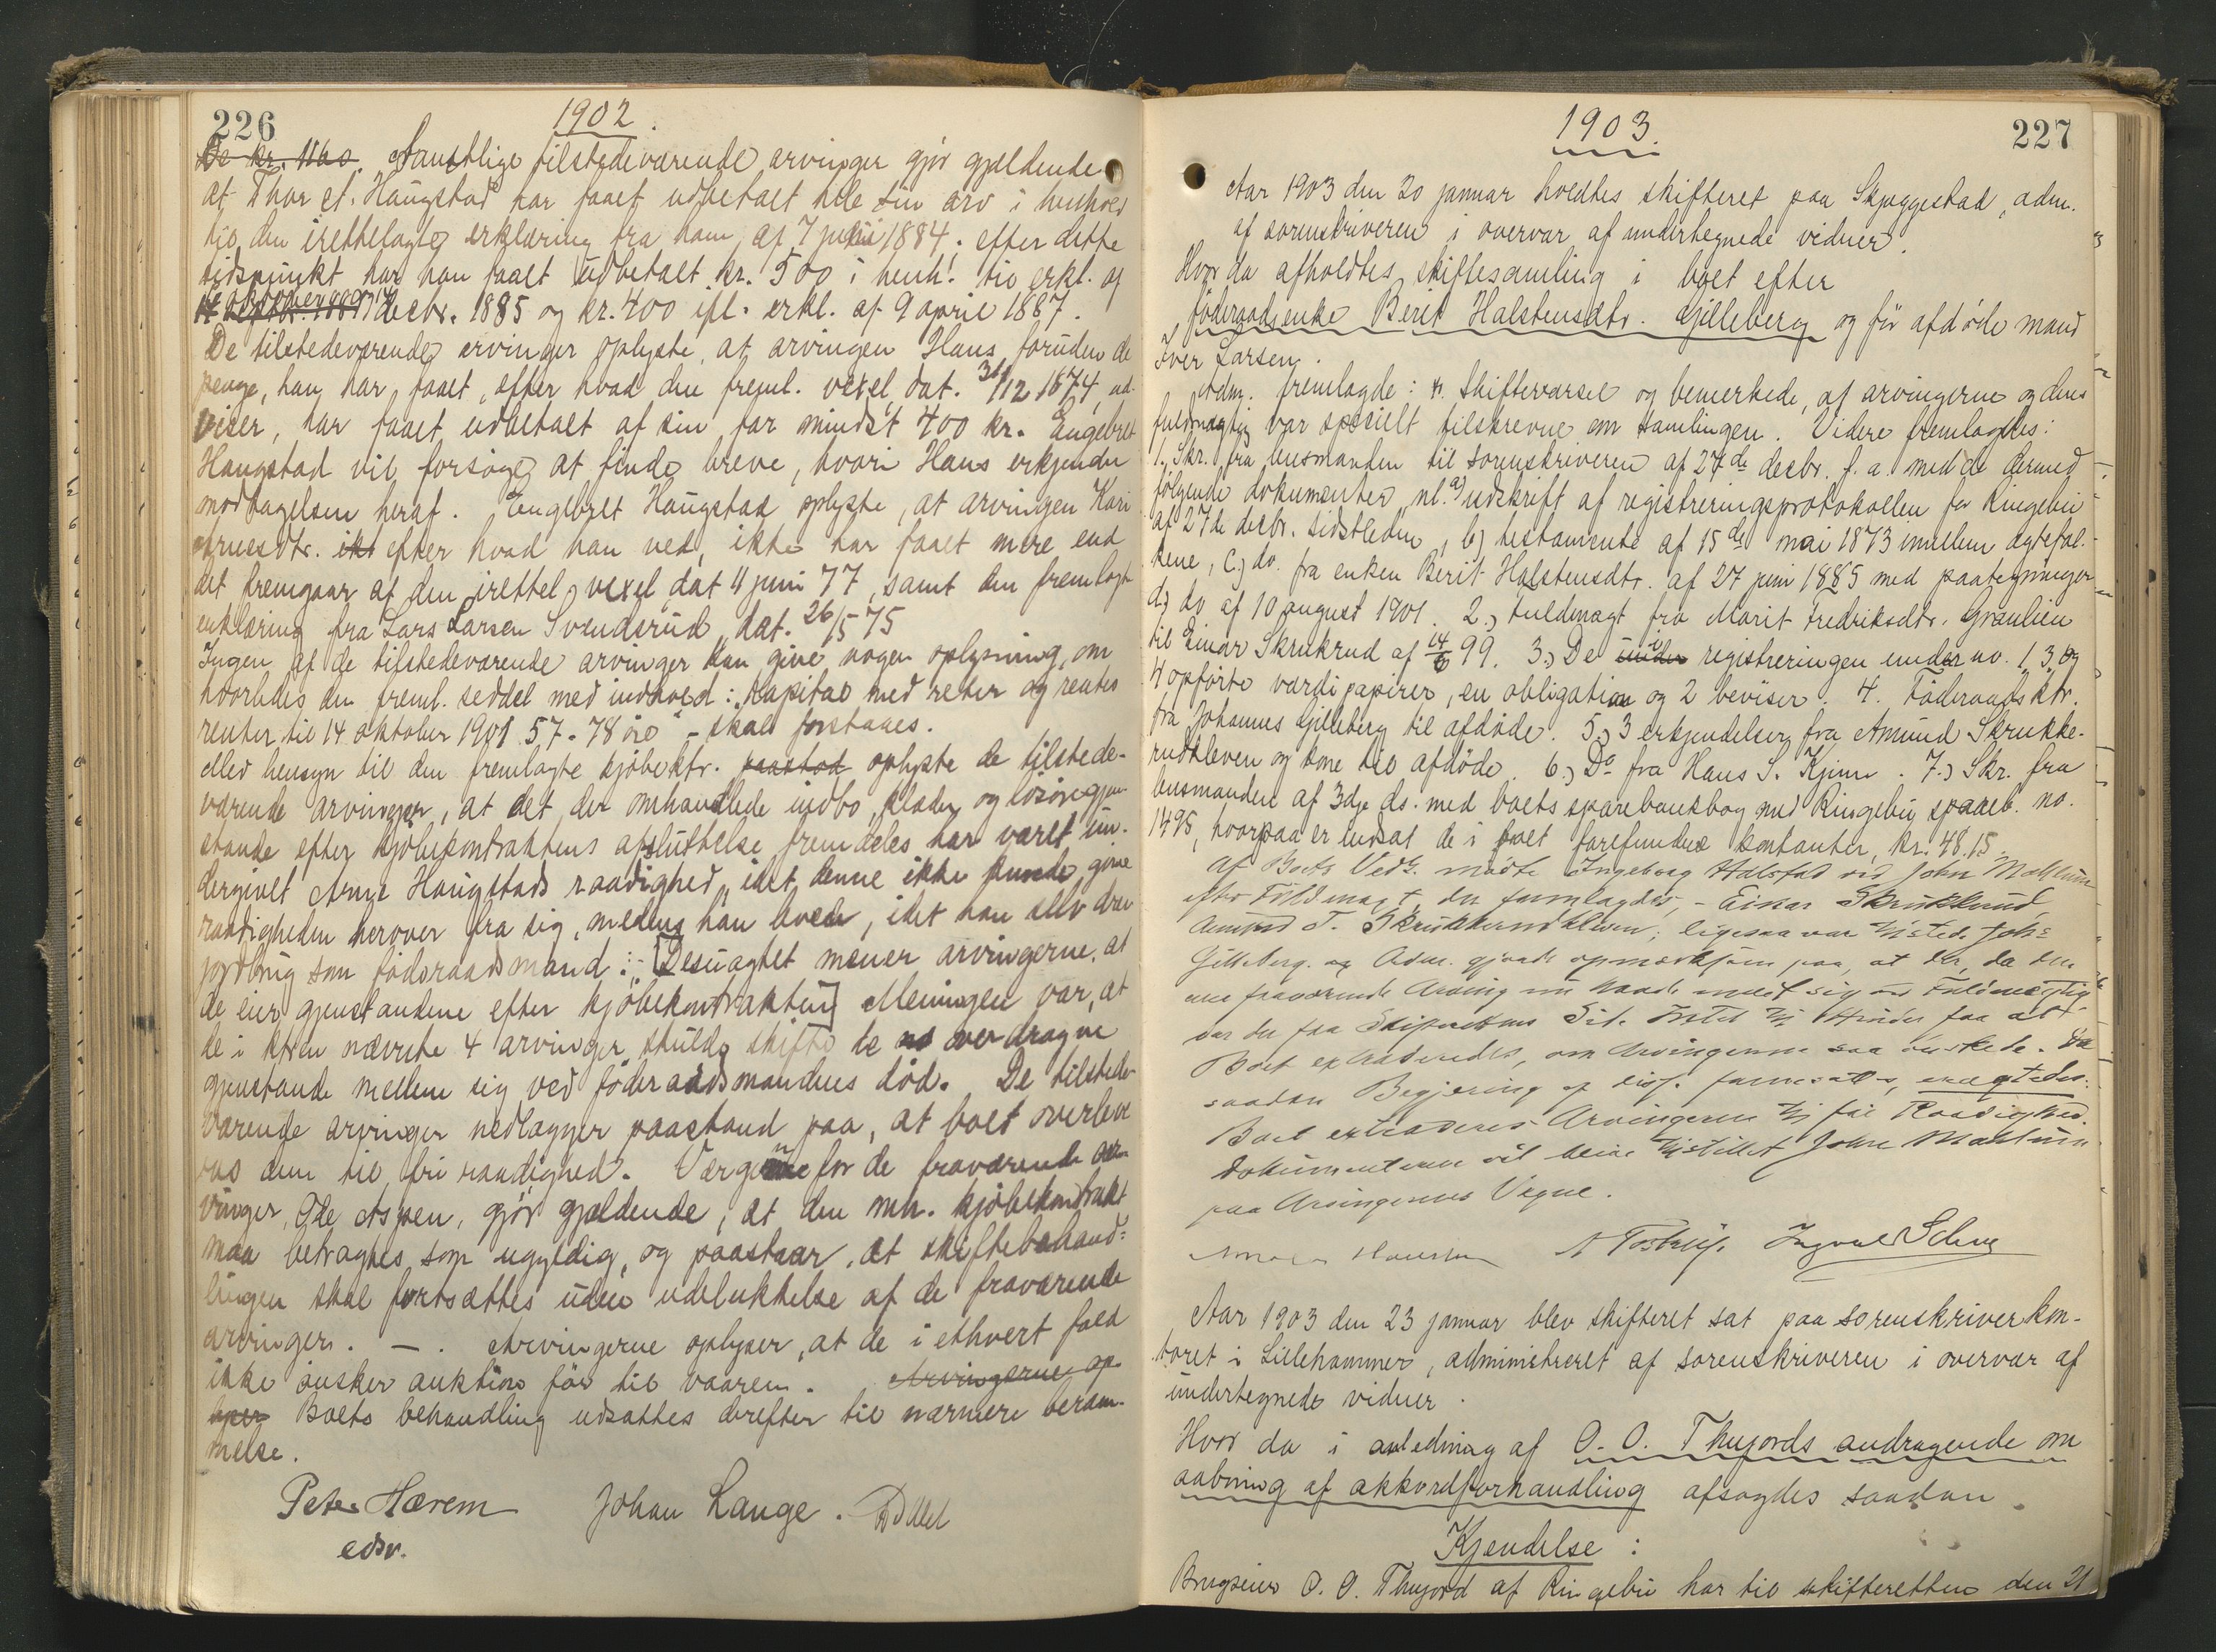 226
1902.
De kr. 1160. Samtlige tilstedeværende arvinger gjör gjældende
at Thor A. Haugstad har faaet udbetalt hele sin arv i henhold
til den irettelagte erklæring fra ham af 7 juni 1884; efter dette
tidspunkt har han faaet udbetalt kr. 500 i henh. til erkl. af
14 decbr. 1885 og kr. 400 ifl. erkl. af 9 april 1887.
De tilstedeværende arvinger oplyste, at arvingen Hans foruden de
penge, han har faaet, efter hvad den freml. vexel, dat. 31/12 1874, ud-
viser, har faaet udbetalt af sin far mindst 400 kr. Engebret
Haugstad vil forsøge at finde breve, hvori Hans erkjender
modtagelsen heraf. Engebret Haugstad oplyste, at arvingen Kari
Arnesdtr. ikt efter hvad han ved, ikke har faaet mere end
det fremgaar af den irettel. vexel, dat 4 juni 77, samt den fremlagte
erklæring fra Lars Larsen Svendsrud, dat. 26/5 75
Ingen af de tilstedeværende arvinger kan give nogen oplysning, om
hvorledes den freml. seddel med indhold: "Kapital med renter og rentes
renter til 14 oktober 1901 57-78 öre" - skal forstaaes.
Med hensyn til den fremlagte kjöbektr. paastod oplyste de tilstede-
værende arvinger, at det der omhandlede indbo, klæder og lösöregjen-
stande efter kjöbekontraktens afsluttelse fremdeles har været un-
dergivet Arne Haugstads raadighed, idet denne ikke kunde give
raadigheden herover fra sig, medens han levede, idet han selv drev
jordbrug som föderaadsmand: Desuagtet mener arvingerne, at
de eier gjenstandene efter kjöbekontrakten] Meningen var, at
de i ktren nævnte 4 arvinger skulde skifte de overdragne
gjenstande mellem sig ved föderaadsmandens död. De tilstede-
værende arvinger nedlægger paastand paa, at boet overleve-
res dem til fri raadighed. Værgen for de fraværende ar-
vinger, Ole Aspen, gjör gjældende, at den nvn. kjöbekontrakt
maa betragtes som ugyldig, og paastaar, at skiftebehand-
lingen skal fortsættes uden udelukkelse af de fraværende
arvinger. —. Arvingerne oplyser, at de i ethvert fald
ikke önsker auktion för til vaaren. Arvingerne op-
lyser Boets behandling udsattes derefter til nærmere beram-
melse.
Peter Hærem Johan Lange.
edsv.
227
1903.
Aar 1903 den 20 januar holdtes skifteret paa Skjæggestad, adm.
af sorenskriveren i overvær af undertegnede vidner.
Hvor da afholdtes skiftesamling i boet efter
föderaadsenke Berit Halstensdtr. Gjilleberg og för afdöde mand
Iver Larsen.
Adm. fremlagde: n. skiftevarsel og bemerkede, at arvingerne og deres
fuldmægtig var specielt tilskrevne om samlingen. Videre fremlagdes:
1. Skr. fra lensmanden til sorenskriveren af 27de decbr. f. a. med de dermed
fölgende dokumenter, nl. a) udskrift af registreringsprotokollen for Ringebu
af 27de decbr. sidstleden, b) testamente af 15de mai 1873 imellem ægtefol-
kene, c) do. fra enken Berit Halstensdtr. af 27 juni 1885 med paategninger
d) do af 10 august 1901. 2.) Fuldmagt fra Marit Fredriksdtr. Graulien
til Einar Skrukrud af 14/6 99. 3.) De under i registreringen under no. 1, 3 og
4 opförte værdipapirer, en obligation og 2 beviser. 4. Föderaadsktr.
fra Johannes Gjilleberg til afdöde. 5.) 3 erkjendelser fra Amund Skrukke-
rudkleven og kone til afdöde. 6.) Do fra Hans S. Kjönn. 7.) Skr. fra
lensmanden af 3dje ds. med boets sparebankbog med Ringebu spareb. no.
1495, hvorpaa er indsat de i boet forefundne kontanter, kr. 48.15.
Af Boets Vedk. mødte Ingeborg Halstad ved John Mæhlum
efter Fuldmagt, der fremlagdes, - Einar Skrukkrud,
Amund T. Skrukkerudkleven; ligesaa var tilstede Johs
Gilleberg. og Adm. gjorde opmærksom paa, at der, da den
ene fraværende Arving nu havde meldt sig ved Fuldmægtig
var der fra Skifterettens Side Intet til Hinder for at
Boet extraderedes, om Arvingerne saa ønskede. Da
saadan Begjæring af disse fremsattes, eragtedes:
Boet extraderes Arvingerne til fri Raadighed.
Dokumenterne vil blive tilstillet John Mæhlum
paa Arvingernes Vegne.
A Tostrup. Ingvald Schive
Aar 1903 den 23 januar blev skifteret sat paa sorenskriverkon-
toret i Lillehammer, administreret af sorenskriveren i overvær af
undertegnede vidner.
Hvor da i anledning af O. O. Thujords andragende om
aabning af akkordforhandling afsagdes saadan
Kjendelse:
Brugseier O. O. Thujord af Ringebu har til skifteretten den 21